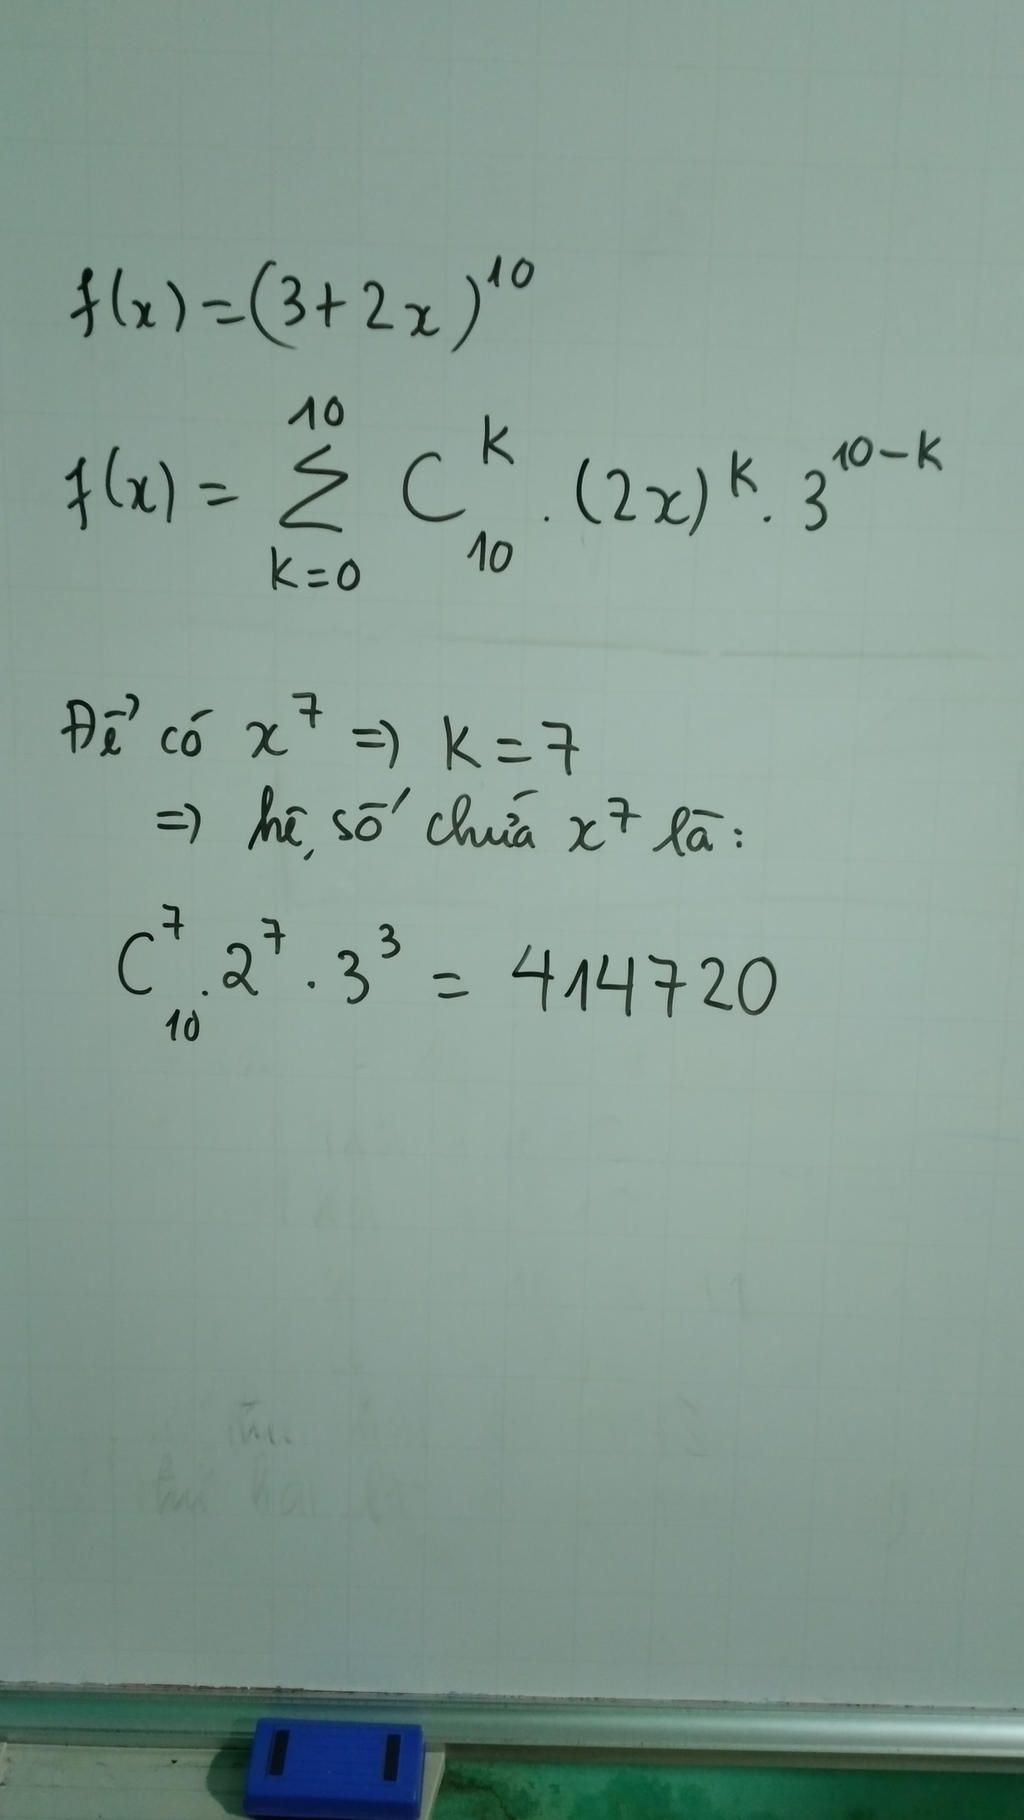 f(x) = (3 + 2x)^10
f(x) = ∑_{k=0}^{10} C_{10}^{k} . (2x)^k . 3^{10-k}
Để có x^7 => k = 7
=> hệ số chứa x^7 là:
C_{10}^{7} . 2^7 . 3^3 = 414720